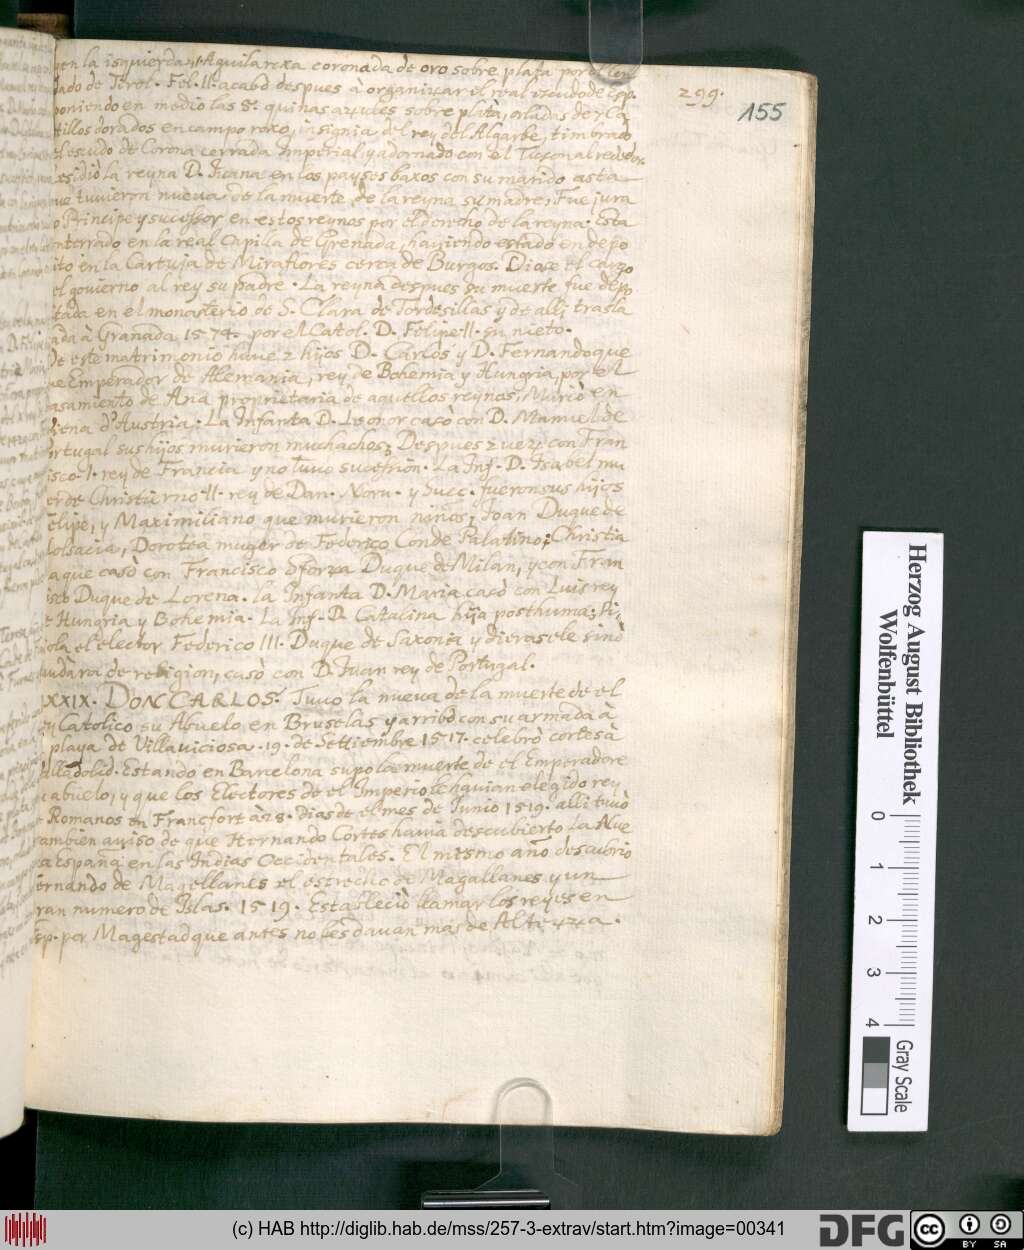 en la isquierda, 4. Aquila roxa coronada de oro sobre plata por el
dado de Tirol. Fel. II. acabò despues a organizar el real escudo de Esp.
poniendo en medio las 5. quinas azules sobre plata, orladas de 7 Ca
tillos dorados en campo roxo, insignia del rey del Algarbe, timbrado
el escudo de Corona cerrada Imperial, y adornado con el Tuson al rededor.
residio la reyna D. Juana en los payses baxos con su marido asta
que tuvieron nueva de la muerte de la reyna su madre; Fue jura
o Principe y sucessor en estos reynos por el derecho de la reyna. Esta
enterrado en la real Capilla de Grenada, haviendo estado en depo
ito en la Cartuja de Miraflores cerca de Burgos. Diose el cargo
el govierno al rey su padre. La reyna despues su muerte fue depo
itada en el monasterio de S. Clara de Tordesillas y de alli trasla
ada à Granada 1574. por el Catol. D. Felipe II. su nieto.
De este matrimonio huve 2 hijos D. Carlos y D. Fernando que
ue Emperador de Alemania, rey de Bohemia y Hungria, por el
asamiento de Ana proprietaria de aquellos reynos, Muriò en
Viena d'Austria. La Infanta D. Leonor casò con D. Manuel de
ortugal sus hijos murieron muchachos; Despues 2 vez con Fran
isco I. rey de Francia y no tuvo sucession. La Inf. D. Isabel mu
er de Christierno II. rey de Dan. Noru. y Suec. fueron sus hijos
elipe, y Maximiliano que murieron niños; Joan Duque de
olsacia, Dorotea muger de Federico Conde Palatino; Christia
a que casò con Francisco Sforza Duque de Milan, y con Fran
isco Duque de Lorena. La Infanta D. Maria casò con Luis rey
e Hungria y Bohemia. La Inf. D. Catalina hija posthuma; Pi
iola el elector Federico III. Duque de Saxonia y dierasele sinò
mudàra de religion, casò con D. Juan rey de Portugal.
LXXIX. DON CARLOS. Tuvo la nueva de la muerte de el
ey Catolico su Abuelo en Bruselas y arribò con su armada à
playa de Villaviciosa. 19. de Settiembre 1517. celebrò cortes à
alladolid. Estando en Barcelona supo la muerte de el Emperadore
u abuelo, y que los Electores de el Imperio le havian elegido rey
e Romanos en Françfort à 28. dias de el mes de Junio 1519. alli tuvò
tambien aviso de que Hernando Cortes havia descubierto la Nue
va España en las Indias Occidentales. El mismo año descubriò
ernando de Magellanes el estrecho de Magallanes y un
ran numero de Islas. 1519. Estableciò llamar los reyes en
Esp. por Magestad que antes no les davan mas de Alteza.
299.
155
Herzog August Bibliothek
Wolfenbüttel
0
1
2
3
4
Gray Scale
(c) HAB http://diglib.hab.de/mss/257-3-extrav/start.htm?image=00341
DFG
cc
BY SA